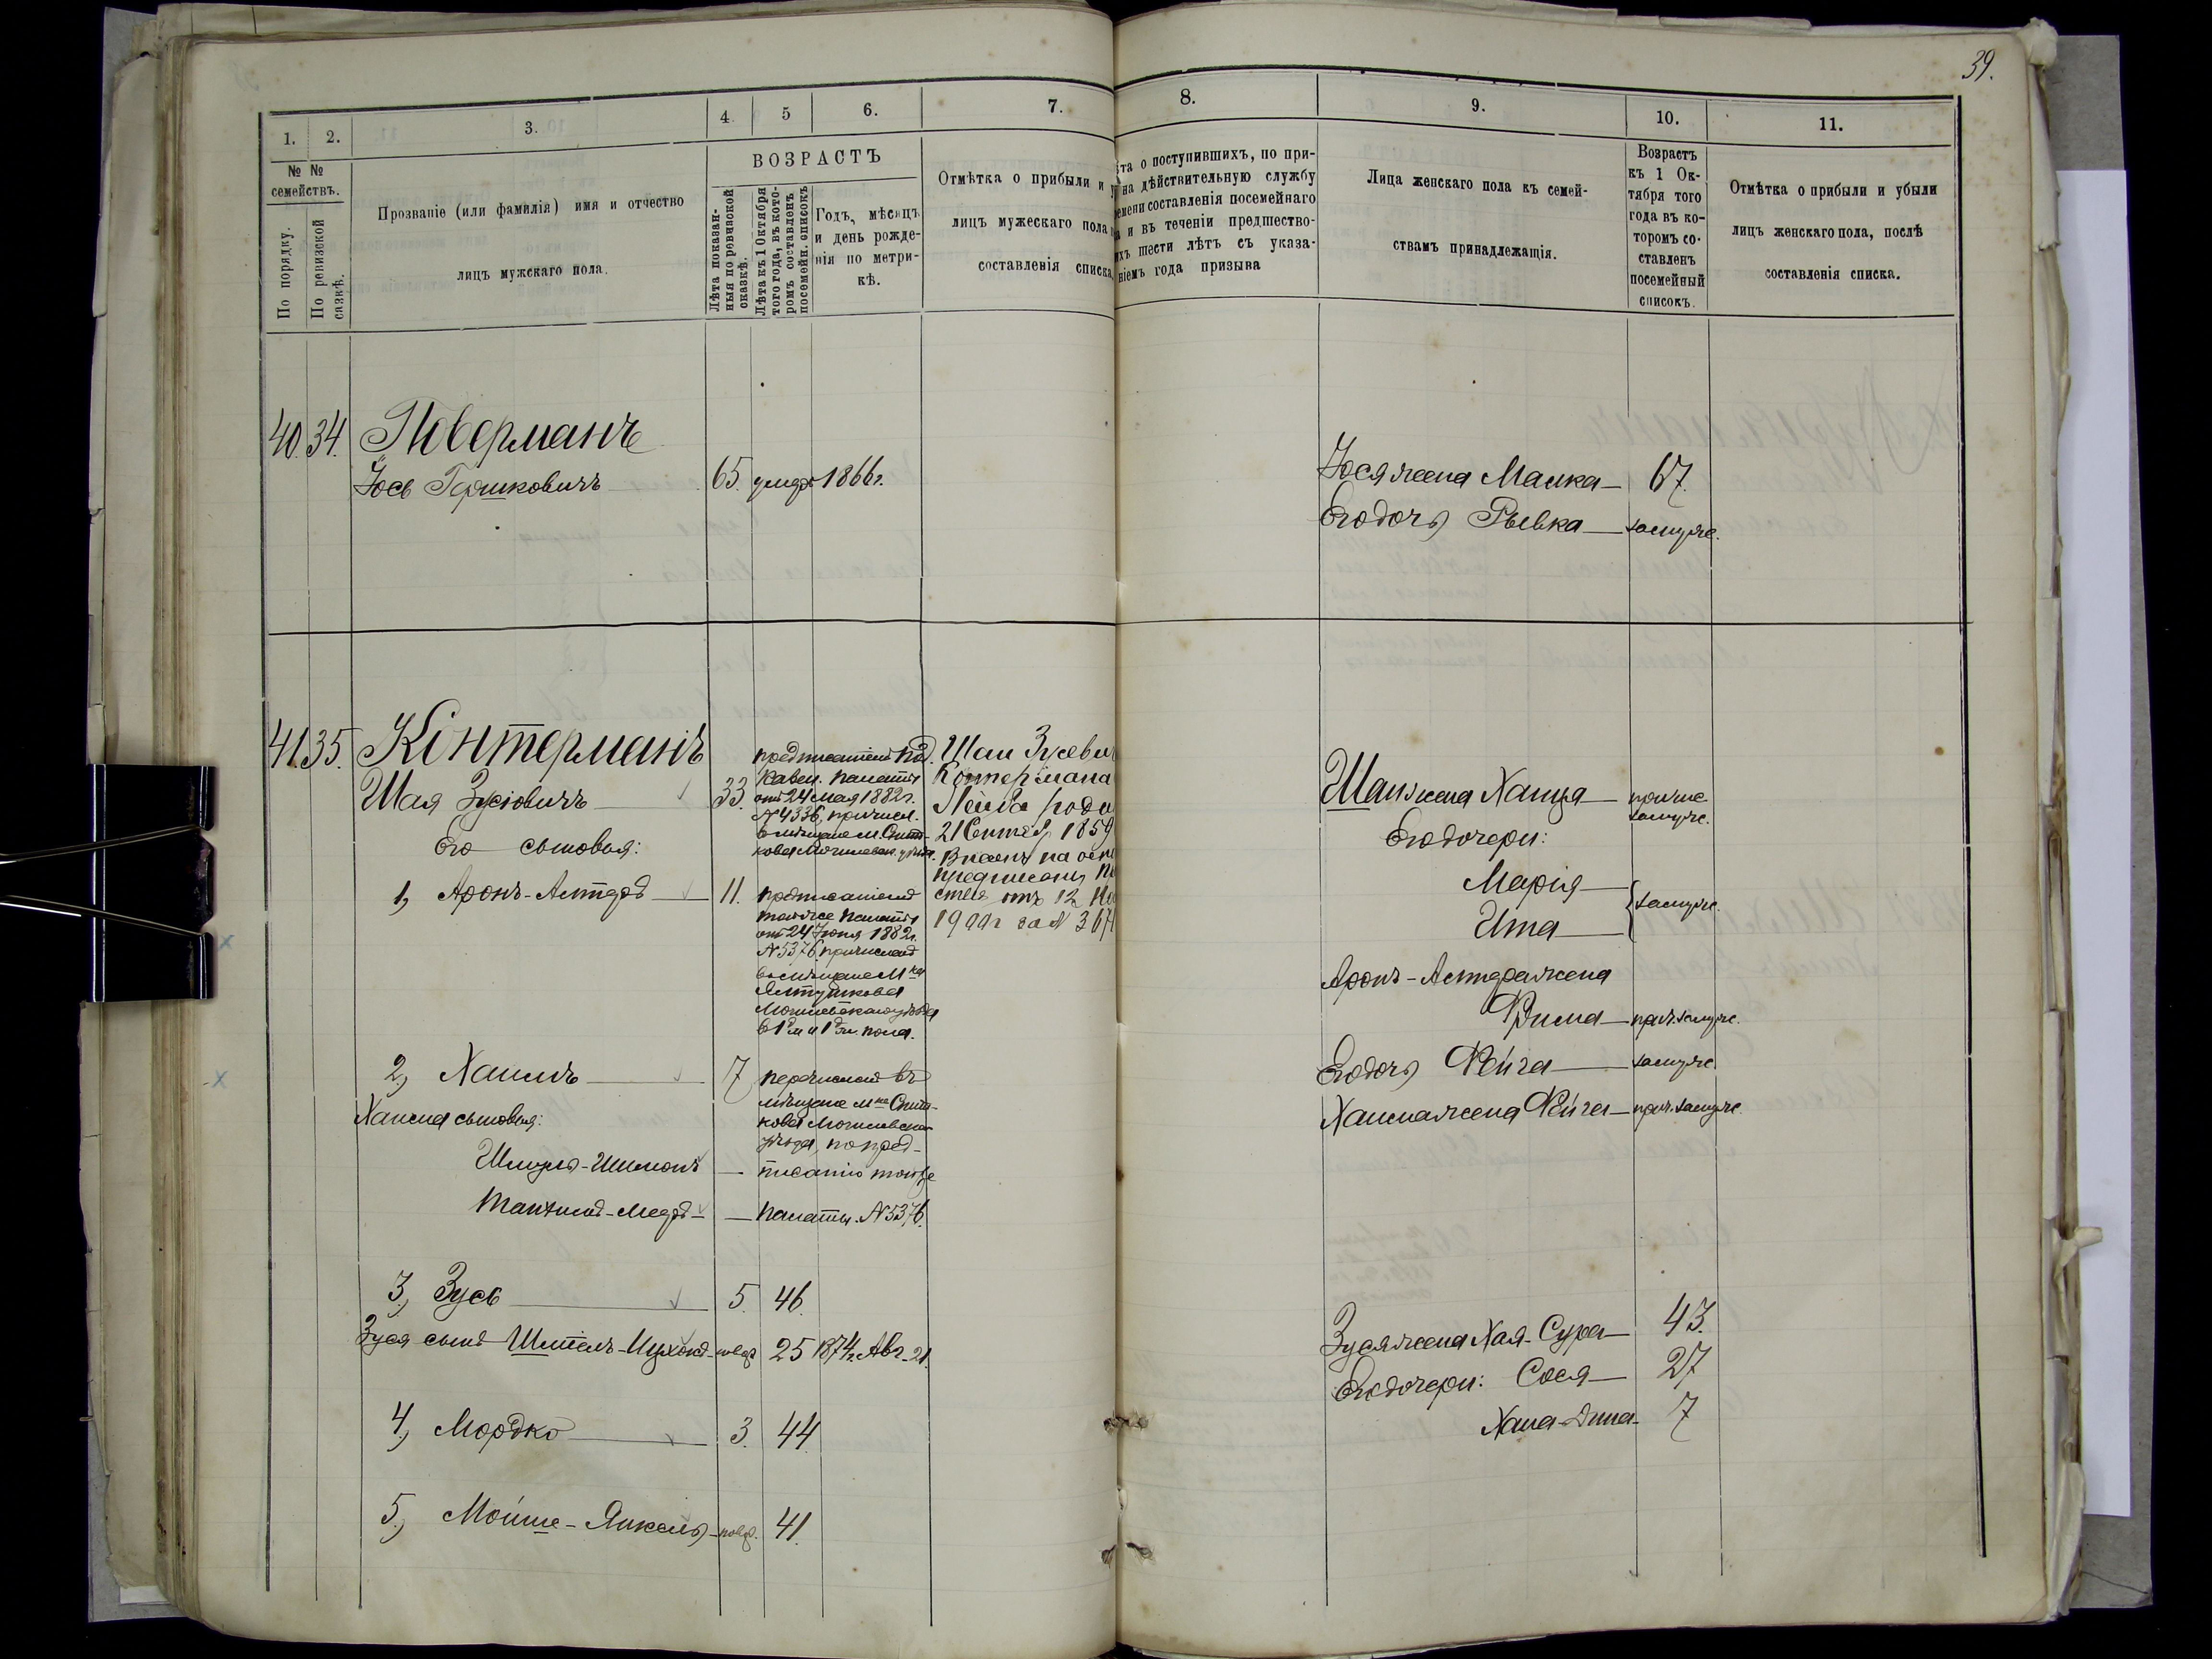 39.
1.
2.
3.
4.
5
6.
7.
8.
9.
10.
11.
№ №
семействъ.
По порядку.
По ревизской
сазкѣ.
Прозваніе (или фамилія) имя и отчество
лицъ мужскаго пола.
ВОЗРАСТЪ
Лѣта показан-
ныя по ревизской
сказкѣ.
Лѣта къ 1 Октября
того года, въ кото-
ромъ составленъ
посемейн. списокъ
Годъ, мѣсяцъ
и день рожде-
нія по метри-
кѣ.
Отмѣтка о прибыли и у
лицъ мужескаго пола
составленія списка,
ѣта о поступившихъ, по при-
на дѣйствительную службу
емени составленія посемейнаго
а и въ теченіи предшество-
ихъ шести лѣтъ съ указа-
ніемъ года призыва
Лица женскаго пола къ семей-
ствамъ принадлежащія.
Возрастъ
къ 1 Ок-
тября того
года въ ко-
торомъ со-
ставленъ
посемейный
списокъ.
Отмѣтка о прибыли и убыли
лицъ женскаго пола, послѣ
составленія списка.
40. 34. Поверманъ
Іось Гершковичъ 65. умеръ 1866г.
Іося жена Малка 67.
Его дочь Рывка замуже.
41. 35. Кінтерманъ
Шая Зусіовичъ 33.
предписаніемъ Под.
Казен. палаты
отъ 24 Мая 1882г.
N 4336, причисл.
въ мѣщане м. Снит-
кова Могилевск. уѣзда.
Шаи Зусеви
Контермана
Лейба роди
21 Сентяб. 1859
Внесенъ на осно
предписанія
отъ 12
за N 367
Шаи жена Ханця причис.
замуже.
Его сыновья:
Его дочери:
Марія
Ита замуже.
1, Аронъ-Алтеръ 11.
предписаніемъ
тойже палаты
отъ 24 Іюня 1882г.
N 5376, причисленъ
въ мѣщане М-ка
Ялтушкова
Могилевскаго уѣзда
Аронъ-Алтера жена
Фрима прич. замуже.
Его дочь Фейга замуже.
2, Хаимъ 7
перечисленъ въ
мѣщане м-ка Снит-
кова Могилевскаго
уѣзда, по пред-
писанію тойже
палаты. N 5376.
Хаима жена Фейга прич. замуже.
Хаима сыновья:
Шмуль-Шимонъ
3, Зусь 5. 46.
Зуся жена Хая-Сура 43.
25 1874г. Авг. 21.
Его дочери: Сося 27
Хана-Дина 7
4, Мордко 3. 44
5, Мойше-Янкель 41.